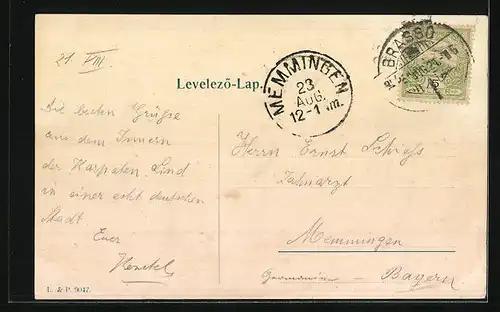 21 VIII
Levelező-Lap.
BRASSÓ
MEMMINGEN
23
AUG.
12-1 m.
Die besten Grüße
aus dem Innern
der Karpaten. Sind
in einer echt deutschen
Stadt
Euer
Herrn Ernst Schieß
Zahnarzt
Memmingen
Bayern
L. & P. 9047.